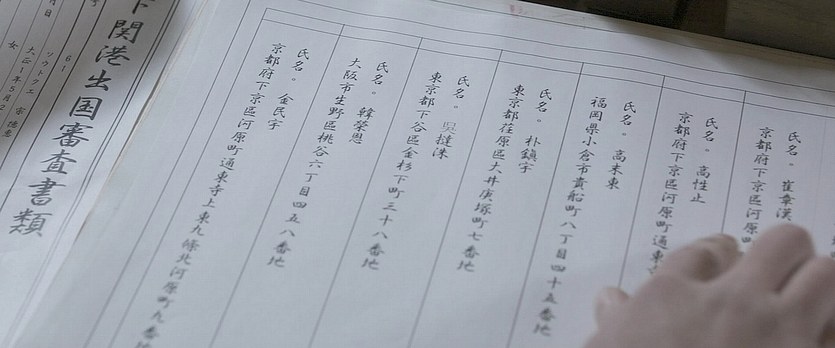 氏名。崔章漢
京都府下京區河原
氏名。高性止
京都府下京區河原町通東
氏名。高未東
福岡県小倉市貴船町八丁目四十五番地
氏名。朴鎮宇
東京都荏原區大井庚塚町七番地
氏名。呉撻洙
東京都下谷區金杉下町三十八番地
氏名。韓榮恩
大阪市生野區桃谷六丁目四五八番地
氏名。金民宇
京都府下京區河原町通東寺上東九條北河原町九番
下関港出国審査書類
61
ソウトクエ 宗德惠
大正1年5月2
女